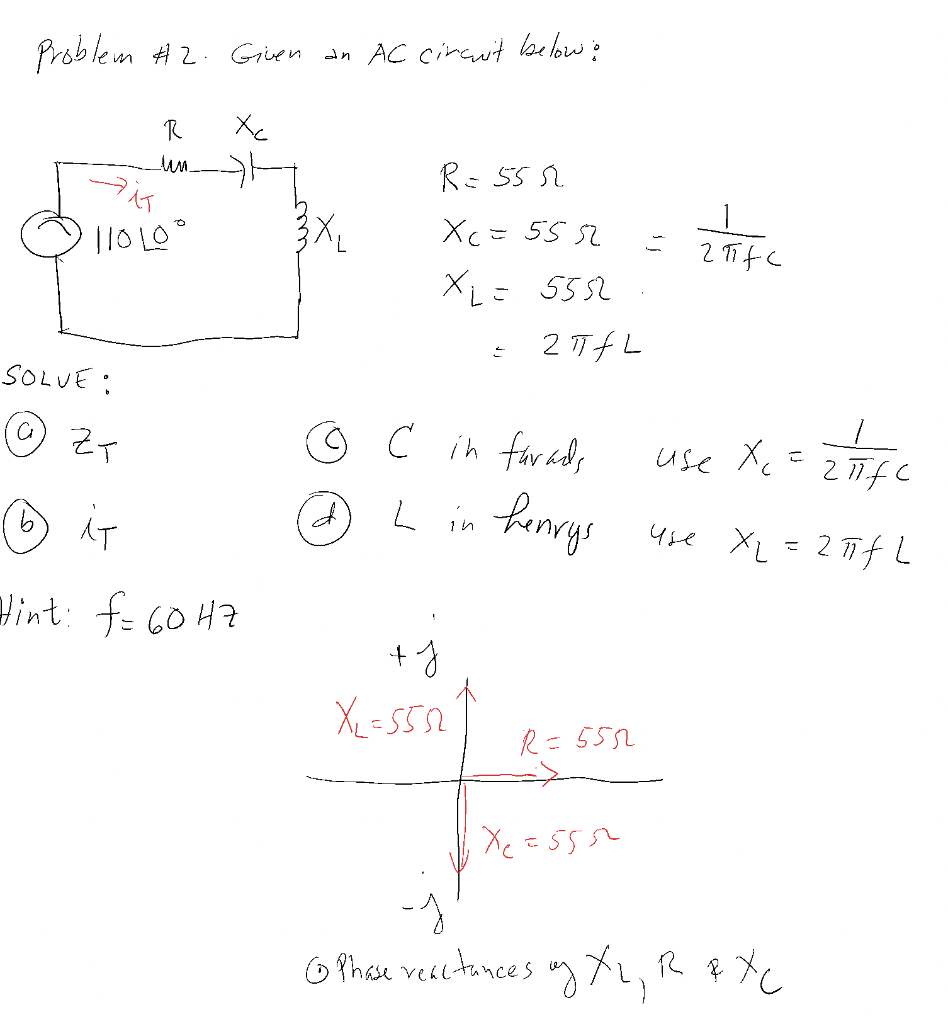 Problem #2. Given an AC circuit below:
R Xc
iT
110∠0°
XL
R = 55 Ω
Xc = 55 Ω = 1/(2πfc)
XL = 55Ω
= 2πfL
SOLVE:
(a) ZT
(b) iT
(c) C in farads use Xc = 1/(2πfc)
(d) L in henrys use XL = 2πfL
Hint: f = 60 HZ
+j
XL = 55Ω
R = 55Ω
Xc = 55Ω
-j
Phase reactances of XL, R & XC